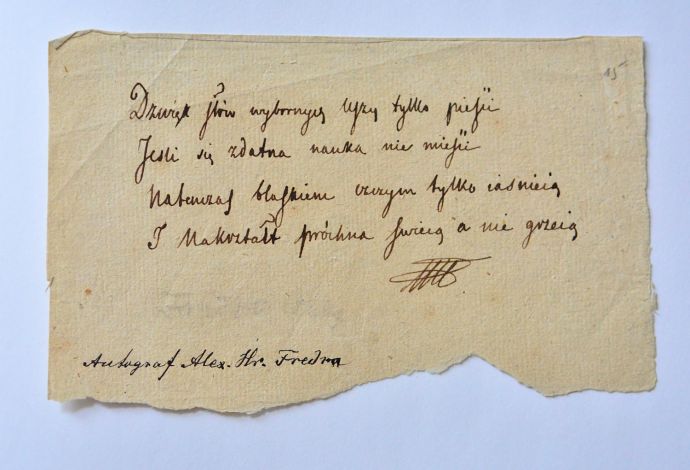 15
Dzwięk słów wybornych Uszy tylko pieśii
Jeśli się zdatna nauka nie mieśii
Natenczas blaskiem czczym tylko iaśnieią
I Nakształt próchna świecą a nie grzeią
Autograf Alex. Hr. Fredra